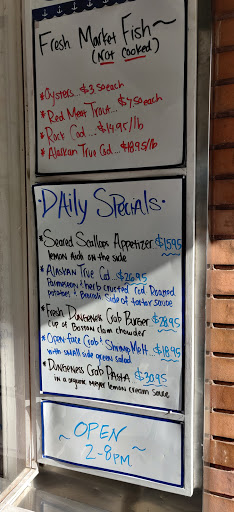 Fresh Market Fish~
(Not Cooked)
*Oysters... $3.50 each
*Red Meat Trout... $7.50 each
*Rock Cod... $14.95/lb
*Alaskan True Cod... $18.95/lb
·Daily Specials·
*Seared Scallops Appetizer $15.95
lemon aioli on the side
*Alaskan True Cod...$26.95
Parmesean & herb crusted red Roasted
potatoes & Broccoli Side of tartar sauce
*Fresh Dungeness Crab Burger $28.95
cup of Boston clam chowder
*Open-face Crab & Shrimp Melt..$18.95
with small side green salad
*Dungeness Crab Pasta $30.95
in a meyer lemon cream sauce
~ OPEN ~
2-8pm